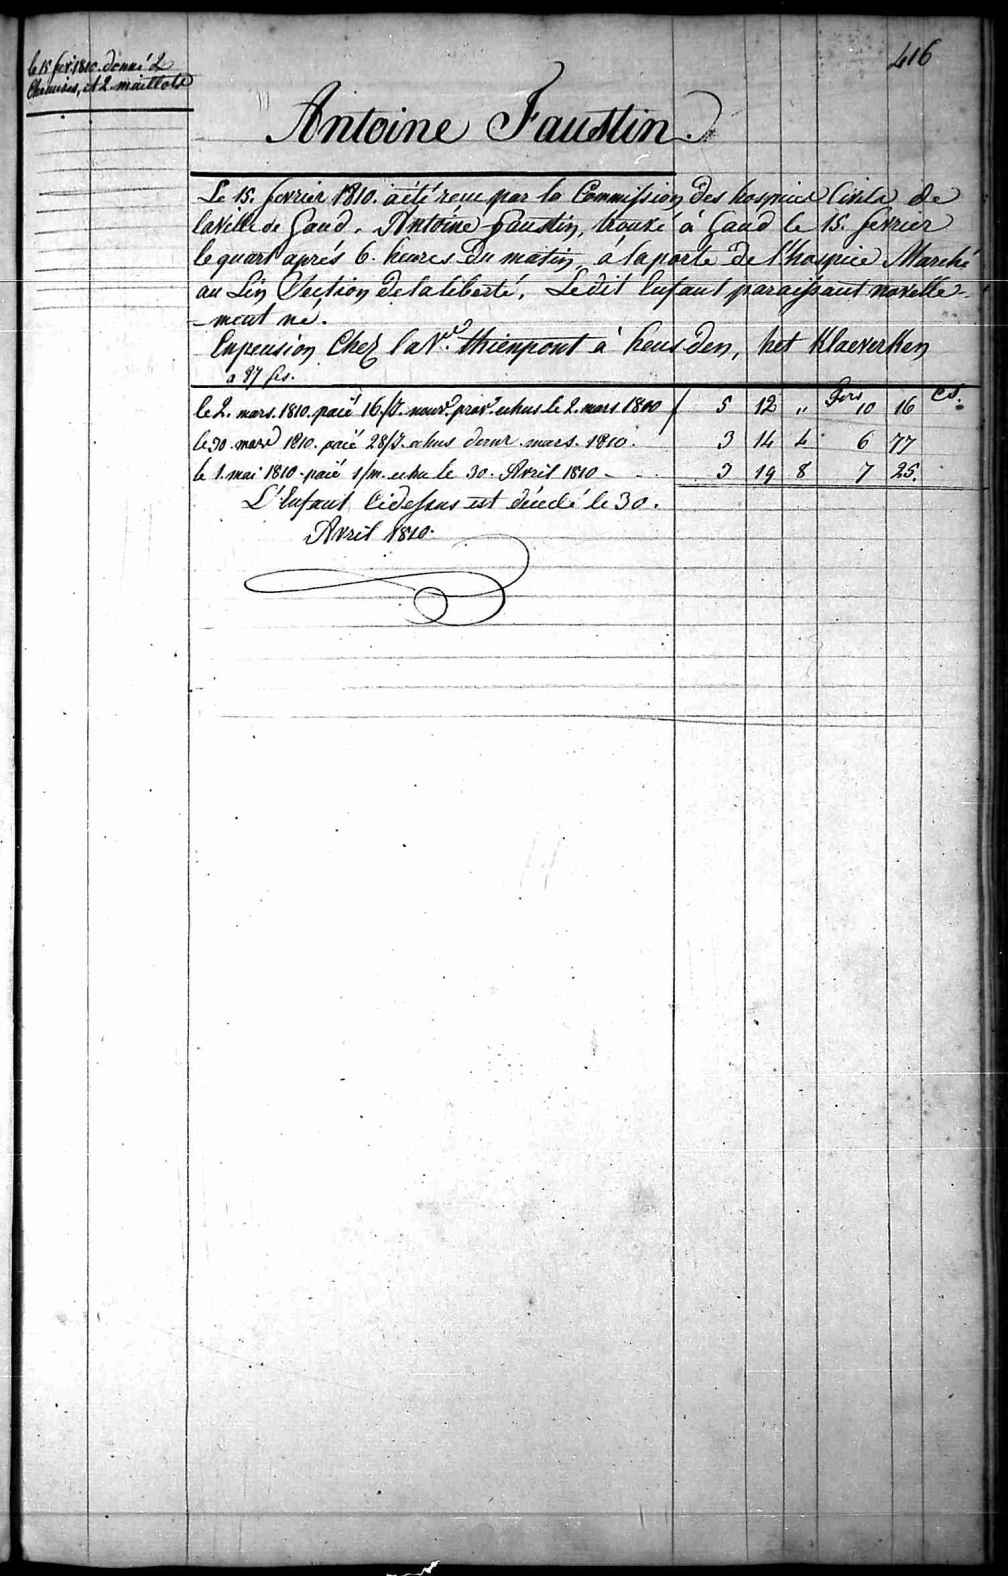 416
le 15 fevr 1810. donné 2
Chemises, et 2 maillots
Antoine Faustin.
Le 15. fevrier 1810. a été recue par la Commission des hospices Civils de
la Ville de Gand. Antoine faustin, trouvé à Gand le 15. fevrier
le quart aprés 6. heures du matin, à la porte de l'hospice Marché
au Lin Section de la liberté. Ledit Enfant paraissant novelle-
-ment né.
En pension Chez la Ve. thienpont à heusden, het Klaeverken
a 97 frs.
frs cs.
le 2. mars. 1810. paié 16/J. nour. prov. echus le 2. mars 1810 / 5 12 " 10 16
le 30. mars 1810. paié 28/J. echus mars. 1810. 3 14 4 6 77
le 1. mai 1810. paié 1/m. echu le 30. Avril 1810 - 3 19 8 7 25.
L'Enfant Cidessus est décedé le 30.
Avril 1810.